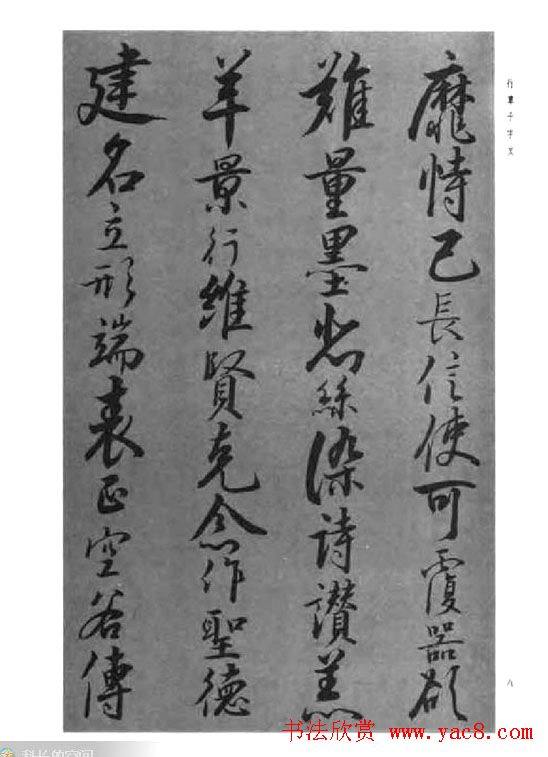 行草千字文
靡恃己長信使可覆器欲
難量墨悲絲染詩讃羔
羊景行維賢克念作聖德
建名立形端表正空谷傳
八
书法欣赏 www.yac8.com
科长的空间